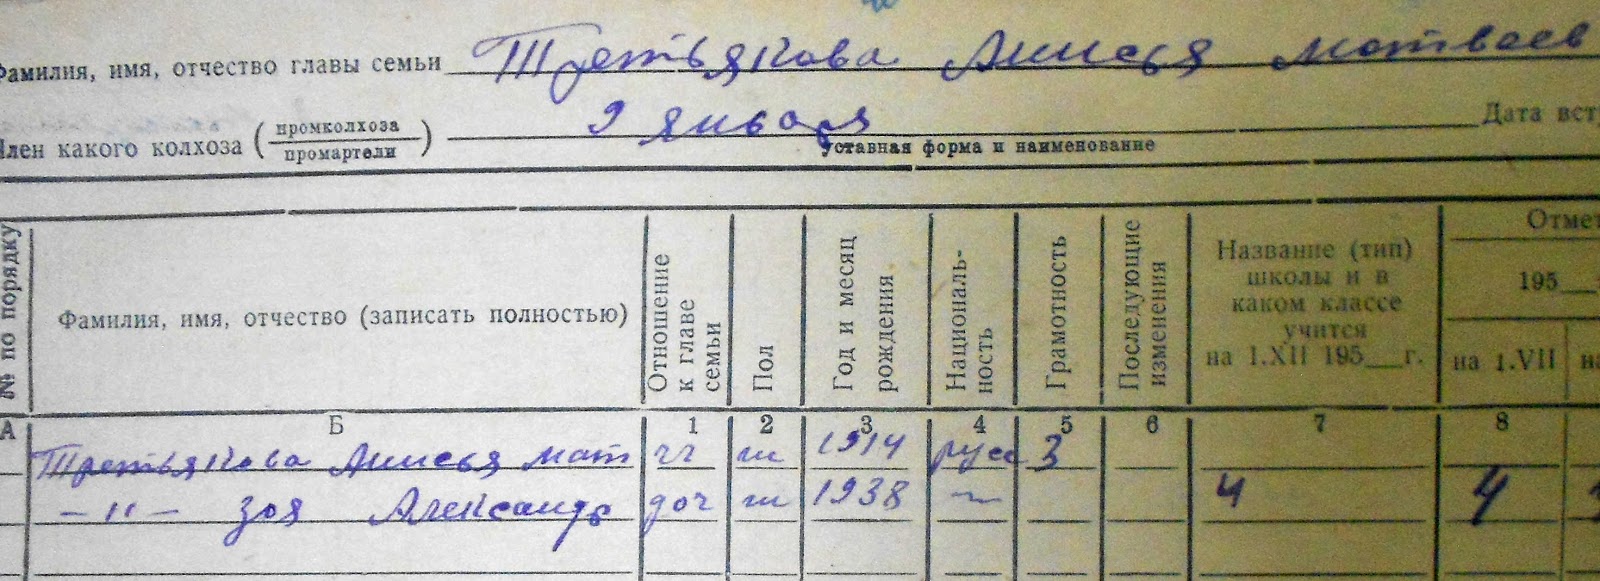 Фамилия, имя, отчество главы семьи Третьякова Анисья Матвеев
Член какого колхоза (промколхоза / промартели) 9 января Дата вст
уставная форма и наименование
№ по порядку Фамилия, имя, отчество (записать полностью) Отношение к главе семьи Пол Год и месяц рождения Националь-ность Грамотность Последующие изменения Название (тип) школы и в каком классе учится на 1.XII 195__г. Отмет
195__
на 1.VII на
А Б 1 2 3 4 5 6 7 8
Третьякова Анисья Мат гл ж 1914 русс 3
-"- Зоя Александр доч ж 1938 -"- 4 4